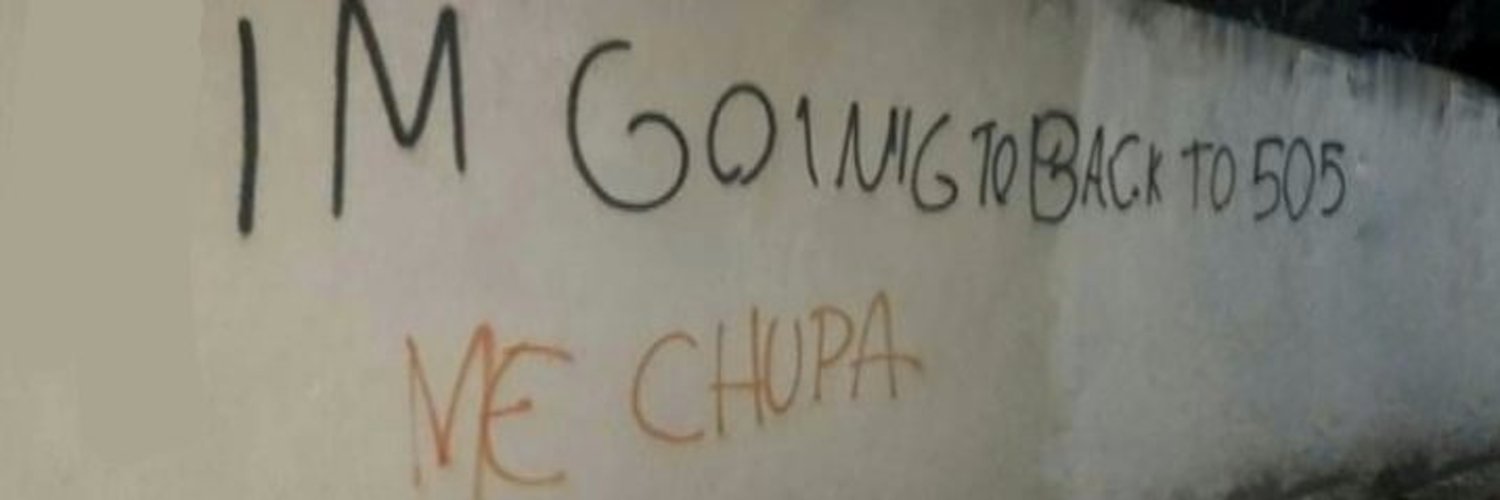 IM GOING TO BACK TO 505
ME CHUPA